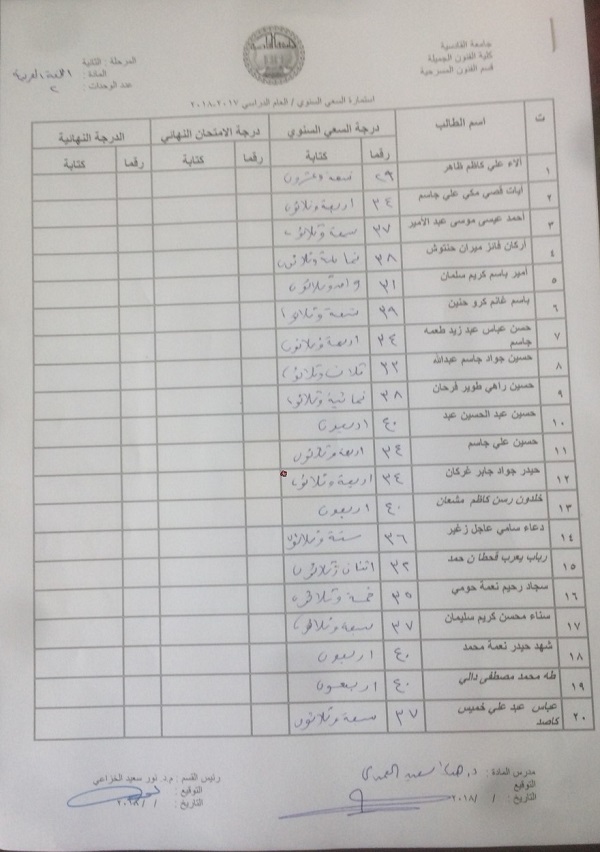 جامعة القادسية
كلية الفنون الجميلة
قسم الفنون المسرحية
المرحلة : الثانية
المادة : اللغة العربية
عدد الوحدات : ٢
استمارة السعي السنوي / العام الدراسي ٢٠١٧-٢٠١٨
ت اسم الطالب درجة السعي السنوي درجة الامتحان النهائي الدرجة النهائية
رقما كتابة رقما كتابة رقما كتابة
١ آلاء علي كاظم ظاهر ٢٩ تسعة وعشرون
٢ ايات قصي مكي علي جاسم ٣٤ اربعة وثلاثون
٣ احمد عيسى موسى عبد الامير ٣٧ سبعة وثلاثون
٤ اركان فائز ميران حنتوش ٣٨ ثمانية وثلاثون
٥ امير باسم كريم سلمان ٣١ واحد وثلاثون
٦ باسم غانم كرو حنين ٣٩ تسعة وثلاثون
٧ حسن عباس عبد زيد طعمه جاسم ٣٤ اربعة وثلاثون
٨ حسين جواد جاسم عبدالله ٣٣ ثلاث وثلاثون
٩ حسين راهي طوير فرحان ٣٨ ثمانية وثلاثون
١٠ حسين عبد الحسين عبد ٤٠ اربعون
١١ حسين علي جاسم ٣٤ اربعة وثلاثون
١٢ حيدر جواد جابر غركان ٣٤ اربعة وثلاثون
١٣ خلدون رسن كاظم مشعان ٤٠ اربعون
١٤ دعاء سامي عاجل زغير ٣٦ ستة وثلاثون
١٥ رباب يعرب قحطان حمد ٣٢ اثنان وثلاثون
١٦ سجاد رحيم نعمة حومي ٣٥ خمسة وثلاثون
١٧ سناء محسن كريم سليمان ٣٧ سبعة وثلاثون
١٨ شهد حيدر نعمة محمد ٤٠ اربعون
١٩ طه محمد مصطفى دالي ٤٠ اربعون
٢٠ عباس عبد علي خميس كاصد ٣٧ سبعة وثلاثون
مدرس المادة : د.
التوقيع
التاريخ : / / ٢٠١٨
رئيس القسم : م.د. نور سعيد الخزاعي
التوقيع
التاريخ : / / ٢٠١٨